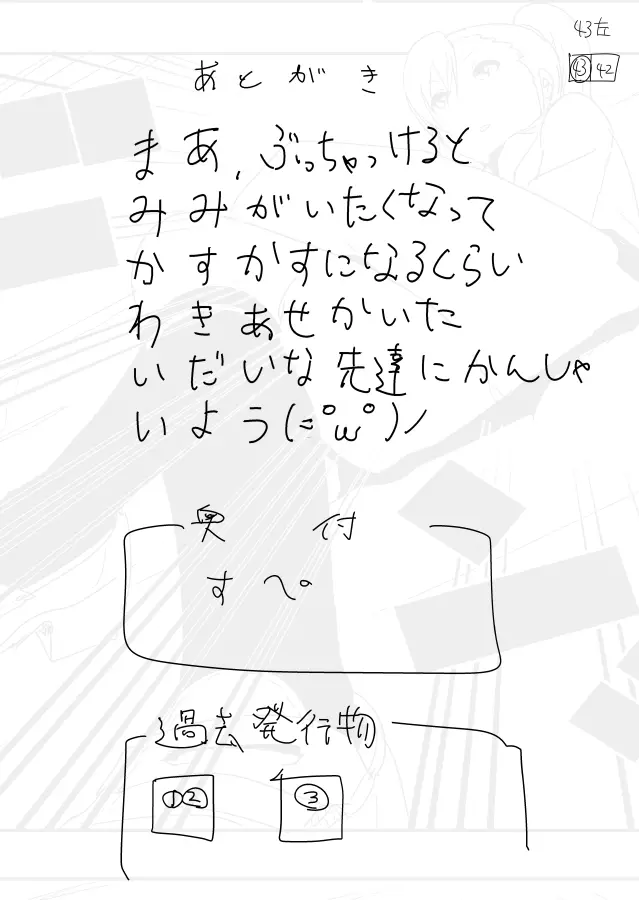 43左
43 42
あとがき
まあ、ぶっちゃけると
みみがいたくなって
かすかすになるくらい
わきあせかいた
いだいな先達にかんしゃ
いよう(=゚ω゚)ノ
奥付
すぺ
過去発行物
①② ③